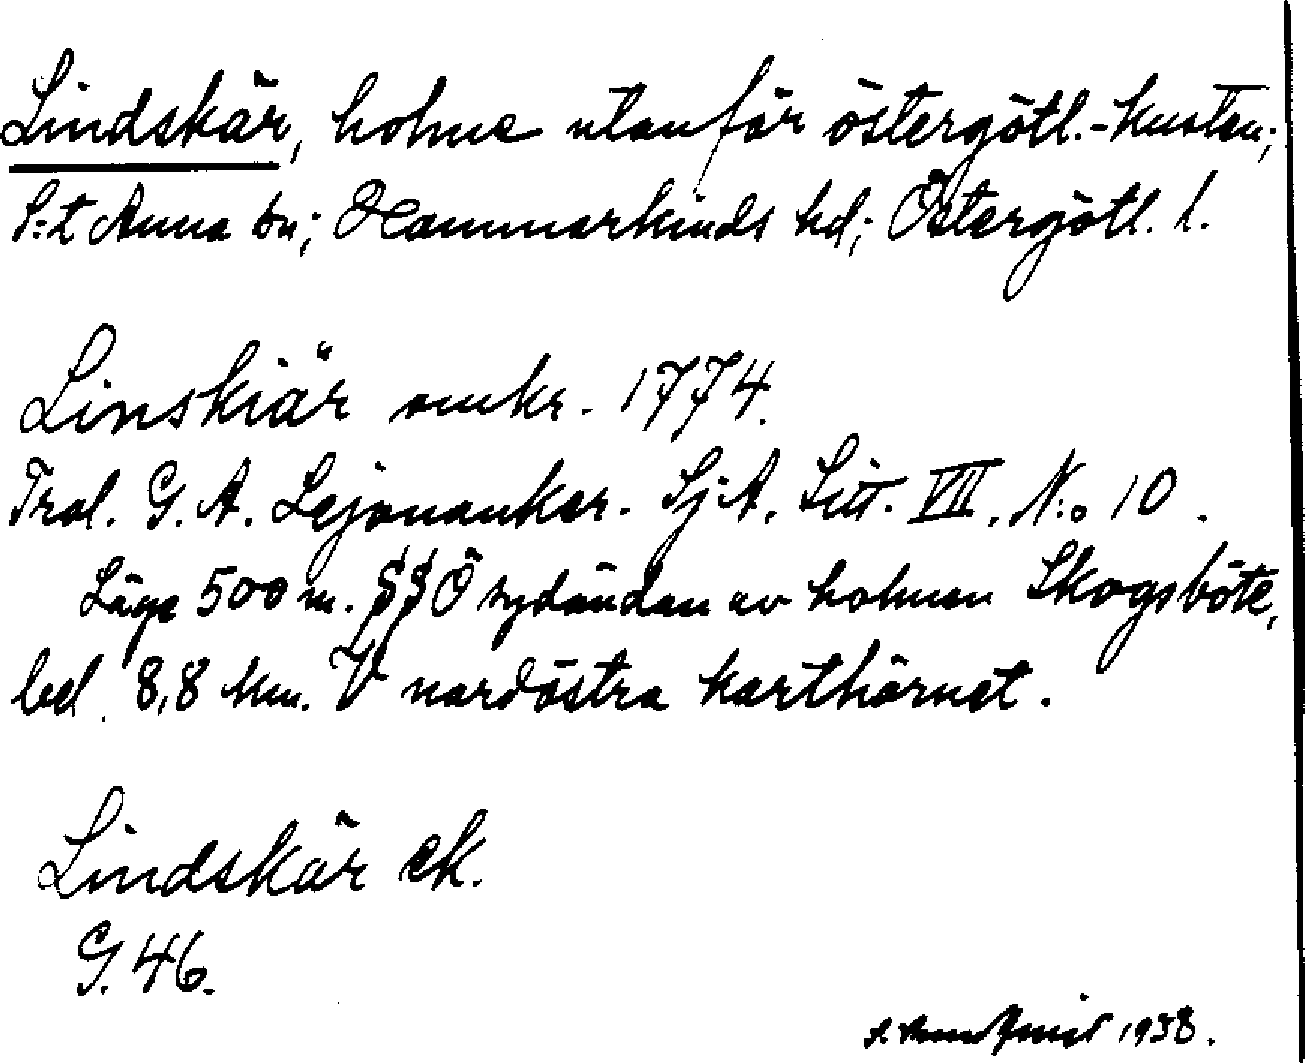 Lindskär, holme utanför östergötl.-kusten;
S:t Anna sn; Hammarkinds hd; Östergötl. l.
Linskiär omkr. 1774.
Trol. G. A. Lejonanker. Sj.A. Litt. VII. N:o 10.
Läge 500 m. SSÖ sydändan av holmen Skogsböte,
bel. 8,8 km. V nordöstra karthörnet.
Lindskär ek.
G. 46.
1938.